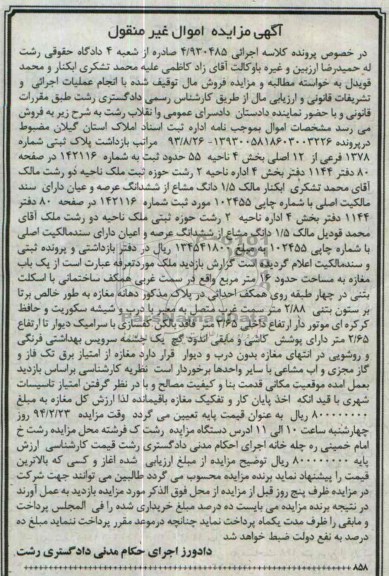 آگهی مزایده اموال غیر منقول
در خصوص پرونده کلاسه اجرائی ۴/۹۳۰۴۸۵ صادره از شعبه ۴ دادگاه حقوقی رشت
له حمیدرضا ارزبین و غیره باوکالت آقای زاد کاظمی علیه محمد تشکری ابکنار و محمد
قویدل به خواسته مطالبه و مزایده فروش مال توقیف شده با انجام عملیات اجرائی و
تشریفات قانونی و ارزیابی مال از طریق کارشناس رسمی دادگستری رشت طبق مقررات
قانونی و با حضور نماینده دادستان دادسرای عمومی وانقلاب رشت به شرح زیر به فروش
می رسد مشخصات اموال بموجب نامه اداره ثبت اسناد املاک استان گیلان مضبوط
درپرونده ۱۳۹۳۰۰۵۸۱۸۶۰۳۰۰۳۲۲۶- ۹۳/۸/۲۶ مراتب بازداشت پلاک ثبتی شماره
۱۳۷۸ فرعی از ۱۲ اصلی بخش ۴ ناحیه ۵۵ حدود ثبت به شماره ۱۴۲۱۱۶ در صفحه
۸۰ دفتر ۱۱۴۴ دفتر بخش ۴ اداره ناحیه ۲ رشت حوزه ثبت ملک ناحیه دو رشت مالک
آقای محمد تشکری ابکنار مالک ۱/۵ دانگ مشاع از ششدانگ عرصه و عیان دارای سند
مالکیت اصلی با شماره چاپی ۱۰۲۴۵۵ مورد ثبت شماره ۱۴۲۱۱۶ در صفحه ۸۰ دفتر
۱۱۴۴ دفتر بخش ۴ اداره ناحیه ۲ رشت حوزه ثبتی ملک ناحیه دو رشت ملک آقای
محمد قودیل مالک ۱/۵ دانگ مشاع از ششدانگ عرصه و اعیان دارای سندمالکیت اصلی
با شماره چاپی ۱۰۲۴۵۵ به مبلغ ۱۳۴۵۴۱۸۰۰ ریال در دفتر بازداشتی و پرونده ثبتی
و سندمالکیت اعلام گردیده است گزارش بازدید ملک موردتعرفه عبارت است از یک باب
مغازه به مساحت حدود ۱۶ متر مربع واقع در سمت غربی همکف ساختمانی با اسکلت
بتنی در چهار طبقه روی همکف احداثی در پلاک مذکور دهانه مغازه به طور خالص برتا
بر ستون بتنی ۲/۸۸ متر سمت غرب متصل به معبر با درب شیشه سکوریت و حافظ
کرکره ای موتور دار ارتفاع داخل ۳/۶۵ متر فاقد بالکن کفسازی با سرامیک دیوار تا ارتفاع
۲/۶۵ متر دارای پوشش کاشی و مابقی اندود گچ یک چشمه سرویس بهداشتی فرنگی
و روشویی در انتهای مغازه بدون درب و دیوار قرار دارد مغازه از امتیاز برق تک فاز و
گاز مجزی و اب مشاعی با سایر واحدها برخوردار است نظریه کارشناسی براساس بازدید
بعمل امده موقعیت مکانی قدمت بنا و کیفیت مصالح و با در نظر گرفتن امتیاز تاسیسات
شهری با قید انکه اخذ پایان کار و تفکیک مغازه باقیمانده لذا ارزش کل مغازه به مبلغ
۸۰۰۰۰۰۰۰۰۰ ریال به عنوان قیمت پایه تعیین می گردد وقت مزایده ۹۴/۲/۲۳ روز
چهارشنبه ساعت ۱۰ الی ۱۱ ادرس دستگاه مزایده رشت ک فرشته محل مزایده رشت خ
امام خمینی ره جله خانه اجرای احکام مدنی دادگستری رشت قیمت کارشناسی ارزش
پایه ۸۰۰۰۰۰۰۰۰۰ ریال توضیح مزایده از مبلغ ارزیابی شده اغاز و کسی که بالاترین
قیمت را پیشنهاد نماید برنده مزایده محسوب می گردد طالبین می توانند جهت شرکت
در مزایده ظرف پنج روز قبل از مزایده از محل فوق الذکر مورد مزایده بازدید به عمل آورند
در نتیجه برنده مزایده می بایست ده درصد مبلغ خریداری شده را فی المجلس پرداخت
و مابقی را ظرف مدت یکماه پرداخت نماید چنانچه درموعد مقرر پرداخت ننماید مبلغ ده
درصد به نفع دولت ضبط خواهد شد
دادورز اجرای حکام مدنی دادگستری رشت
۸۵۸